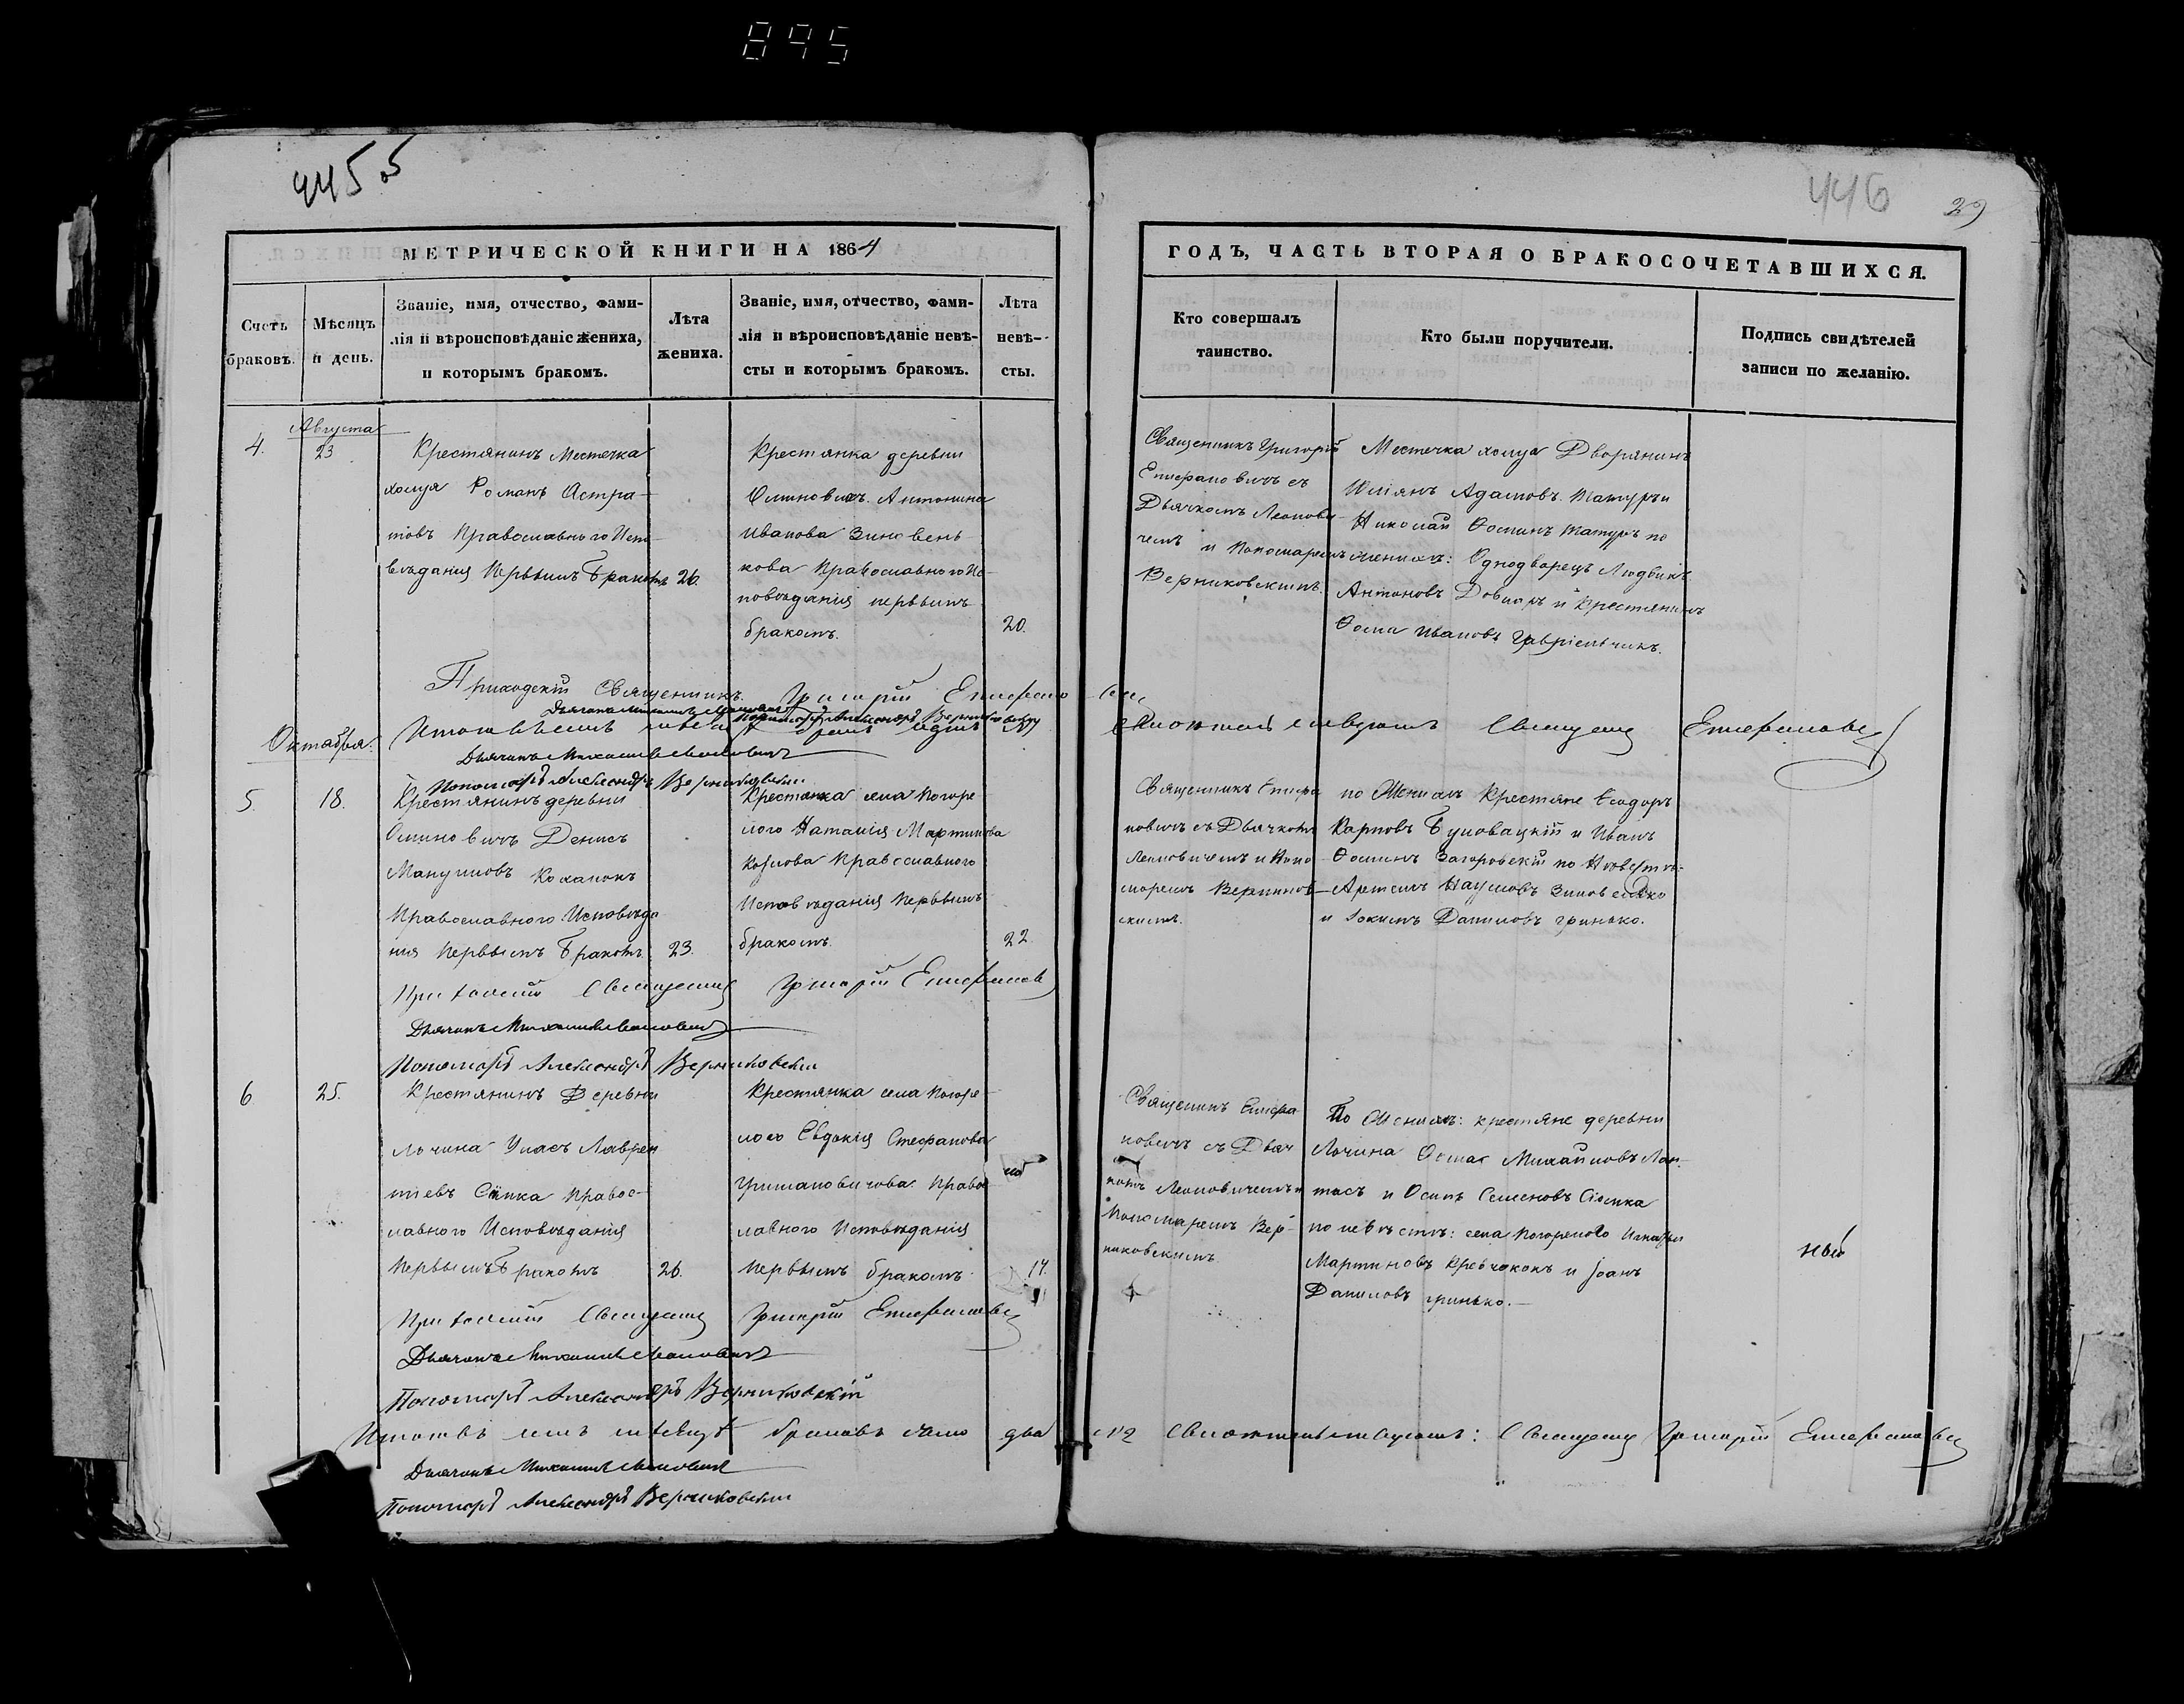 895
445
5
446
29
МЕТРИЧЕСКОЙ КНИГИ НА 1864
ГОДЪ, ЧАСТЬ ВТОРАЯ О БРАКОСОЧЕТАВШИХСЯ.
Счетъ
браковъ.
Мѣсяцъ
и день.
Званіе, имя, отчество, фами-
лія и вѣроисповѣданіе жениха,
и которымъ бракомъ.
Лѣта
жениха.
Званіе, имя, отчество, фами-
лія и вѣроисповѣданіе невѣ-
сты и которымъ бракомъ.
Лѣта
невѣ-
сты.
Кто совершалъ
таинство.
Кто были поручители.
Подпись свидѣтелей
записи по желанію.
Августа
4.
23
Крестянинъ Местечка
холуя Романъ Астра-
товъ Православного Испо-
вѣданія Первымъ Бракомъ
26.
Крестянка деревни
Осиповичъ Антонина
Иванова Зиновень-
кова Православного Ис-
повѣданія первымъ
бракомъ.
20.
Священникъ Григорій
Епифановичъ съ
Дьячкомъ Леонови-
чемъ и Пономаремъ
Верниковскимъ.
Местечка холуя Дворянинъ
Адамовъ
Николай Фоминъ по
женихъ: Однодворецъ Людвикъ
Антоновъ и крестянинъ
Фома Ивановъ Гаврісльчикъ.
Приходскій Священникъ Григорій
Дьячокъ
Пономаръ Александръ Верниковскій
Октября.
Священ Епифанович
Дьячокъ
Пономаръ Александръ Верниковскій
5.
18.
Крестянинъ деревни
Осиновичъ Денисъ
Мануиловъ Коханокъ
Православного Исповѣда
нія Первымъ Бракомъ
23.
Крестянка села Погоре
лого Наталія Мартинова
Козлова Православного
Исповѣданія Первымъ
бракомъ.
22
Священникъ Епифа
новичъ съ Дьячкомъ
Леоновичемъ и Поно
маремъ Верников-
скимъ.
по Женихъ Крестяне Феодоръ
Карповъ и Иванъ
Фоминъ Загоровскій по Невѣстѣ:
Артемъ Наумовъ
и Іокимъ Даниловъ гринько.
Приходскій Священ Григорій Епифанов
Дьячокъ
Пономаръ Александръ Верниковскій
6
25.
Крестянинъ Деревни
Лочина Уласъ Лаврен
тіевъ Сіпка Правос-
лавного Исповѣданія
Первымъ Бракомъ
26.
Крестянка села Погоре
лого Евдокія Стефанова
Гришановичова Правос
лавного Исповѣданія
Первымъ бракомъ
Священикъ Епифа
новичъ съ Дьяч
комъ Леоновичемъ и
Пономаремъ Вер-
никовскимъ.
По Женихъ: крестяне деревни
Лочина Фомас Михайловъ Лап-
тасъ и Осипъ Семеновъ Сіопка
по невѣстѣ: села Погорелого Игнатій
Мартиновъ и Іоанъ
Даниловъ гринько.
Приходскій Священ Григорій Епифанович
Дьячокъ
Пономаръ Александръ Верниковскій
браковъ два №2 свидѣтельствуютъ: Священ Григорій Епифанович
Дьячокъ
Пономаръ Александръ Верниковскій